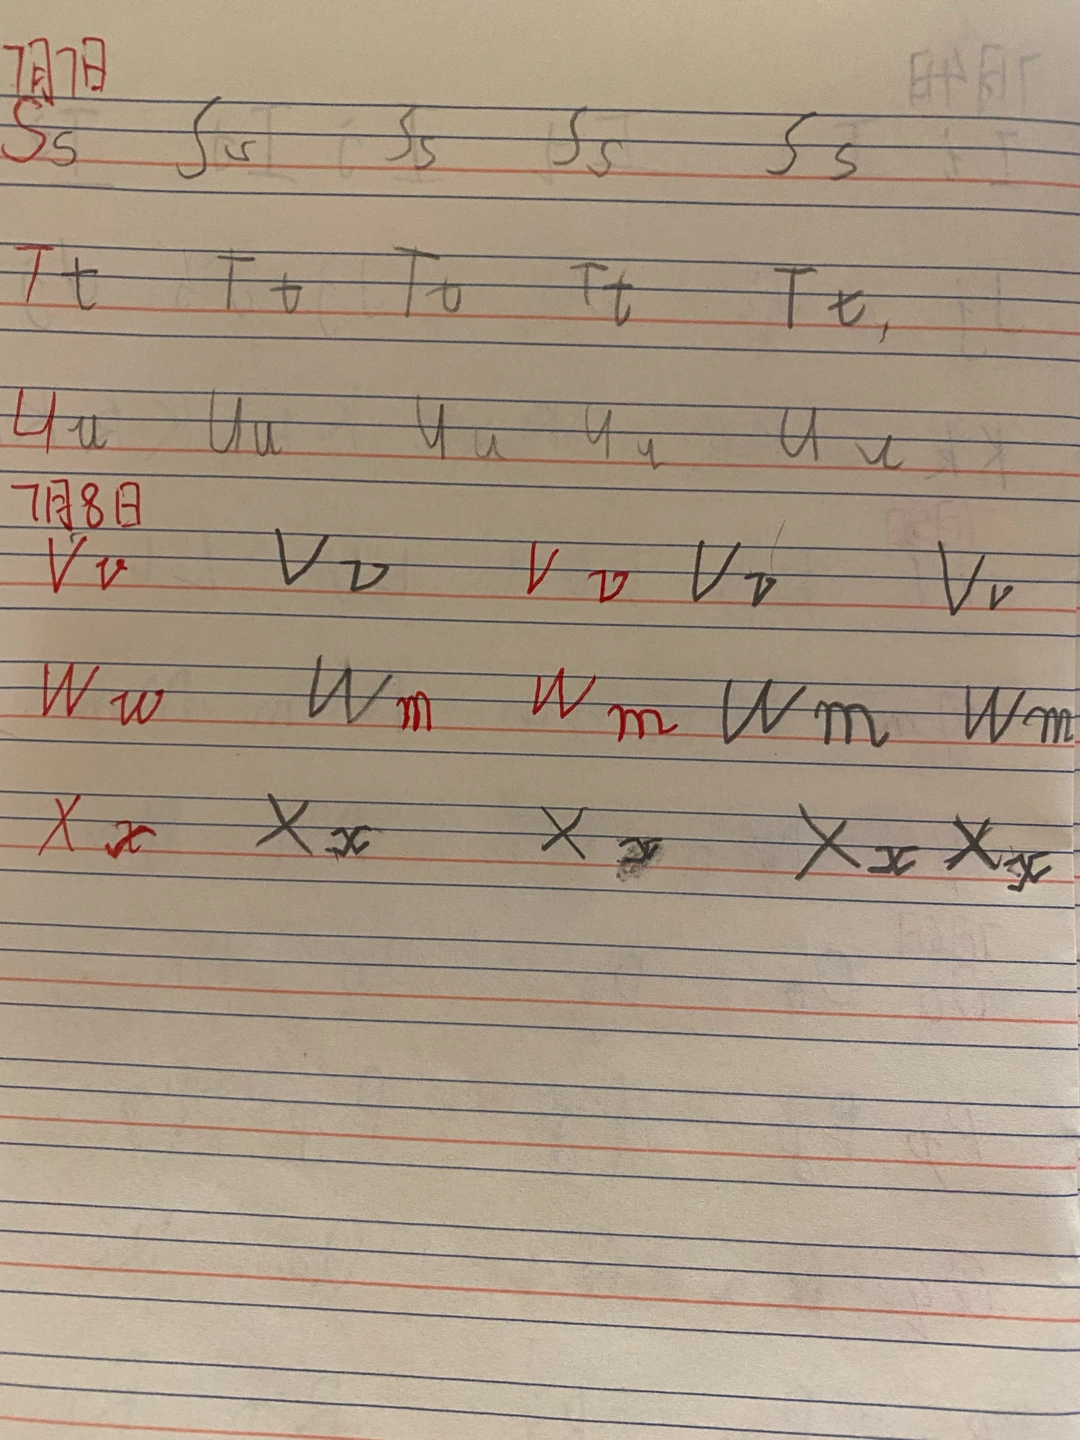 7月7日
Ss Ss Ss Ss Ss
Tt Tt Tt Tt Tt,
Uu Uu Uu Uu Uu
7月8日
Vv Vv Vv Vv Vv
Ww Wm Wm Wm Wm
Xx Xx Xx Xx Xx